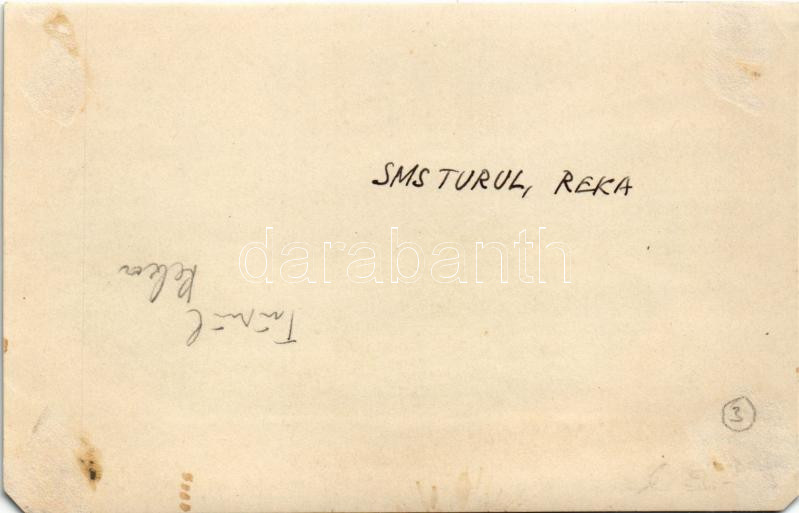 SMS TURUL, REKA
darabanth
Turul
Reka
3